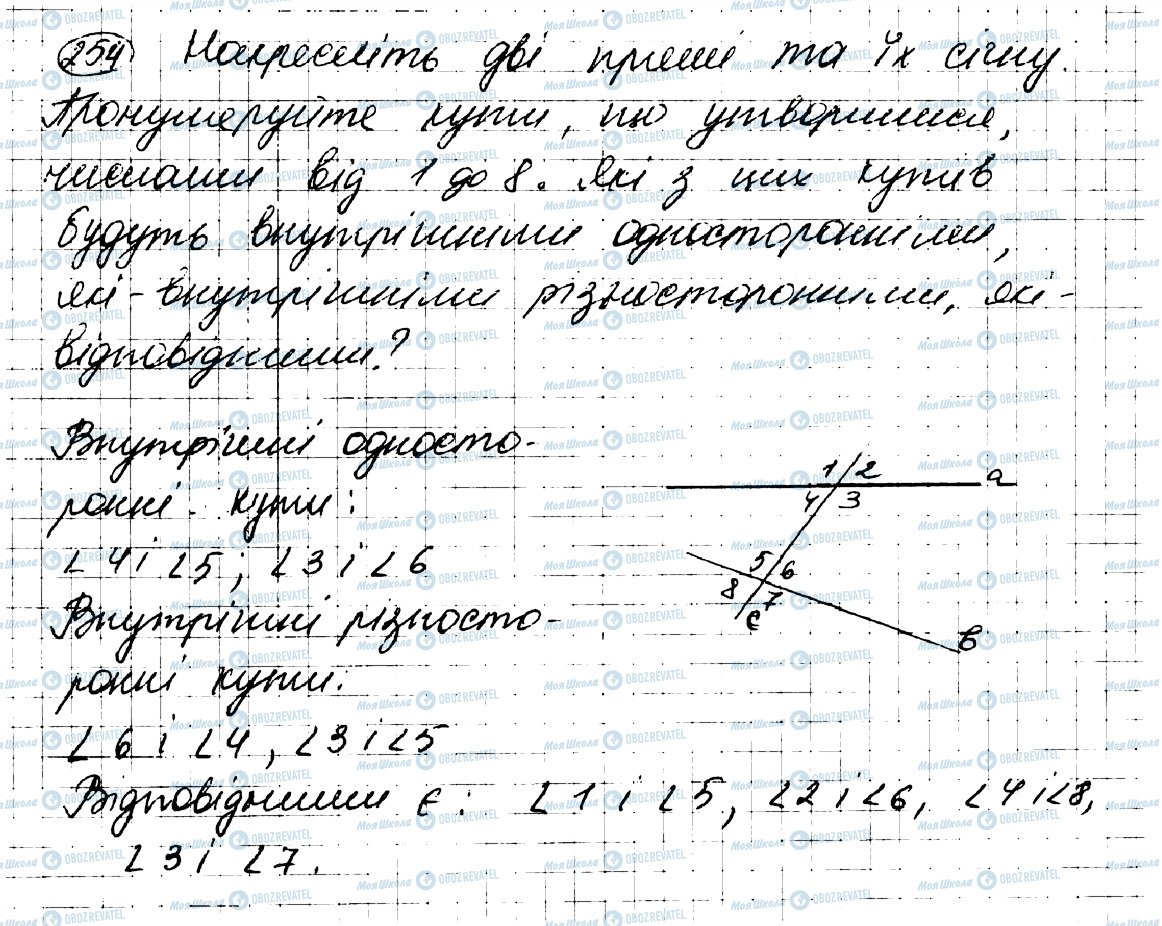 254 Накресліть дві прямі та їх січну.
Пронумеруйте кути, що утворилися,
числами від 1 до 8. Які з цих кутів
будуть внутрішніми односторонніми,
які - внутрішніми різносторонніми, які -
відповідними?
Внутрішні односто-
ронні кути:
∠4 і ∠5; ∠3 і ∠6
Внутрішні різносто-
ронні кути:
∠6 і ∠4, ∠3 і ∠5
Відповідними є: ∠1 і ∠5, ∠2 і ∠6, ∠4 і ∠8,
∠3 і ∠7.
1 2 a
4 3
5 6
8 7
c
b
МояШкола OBOZREVATEL